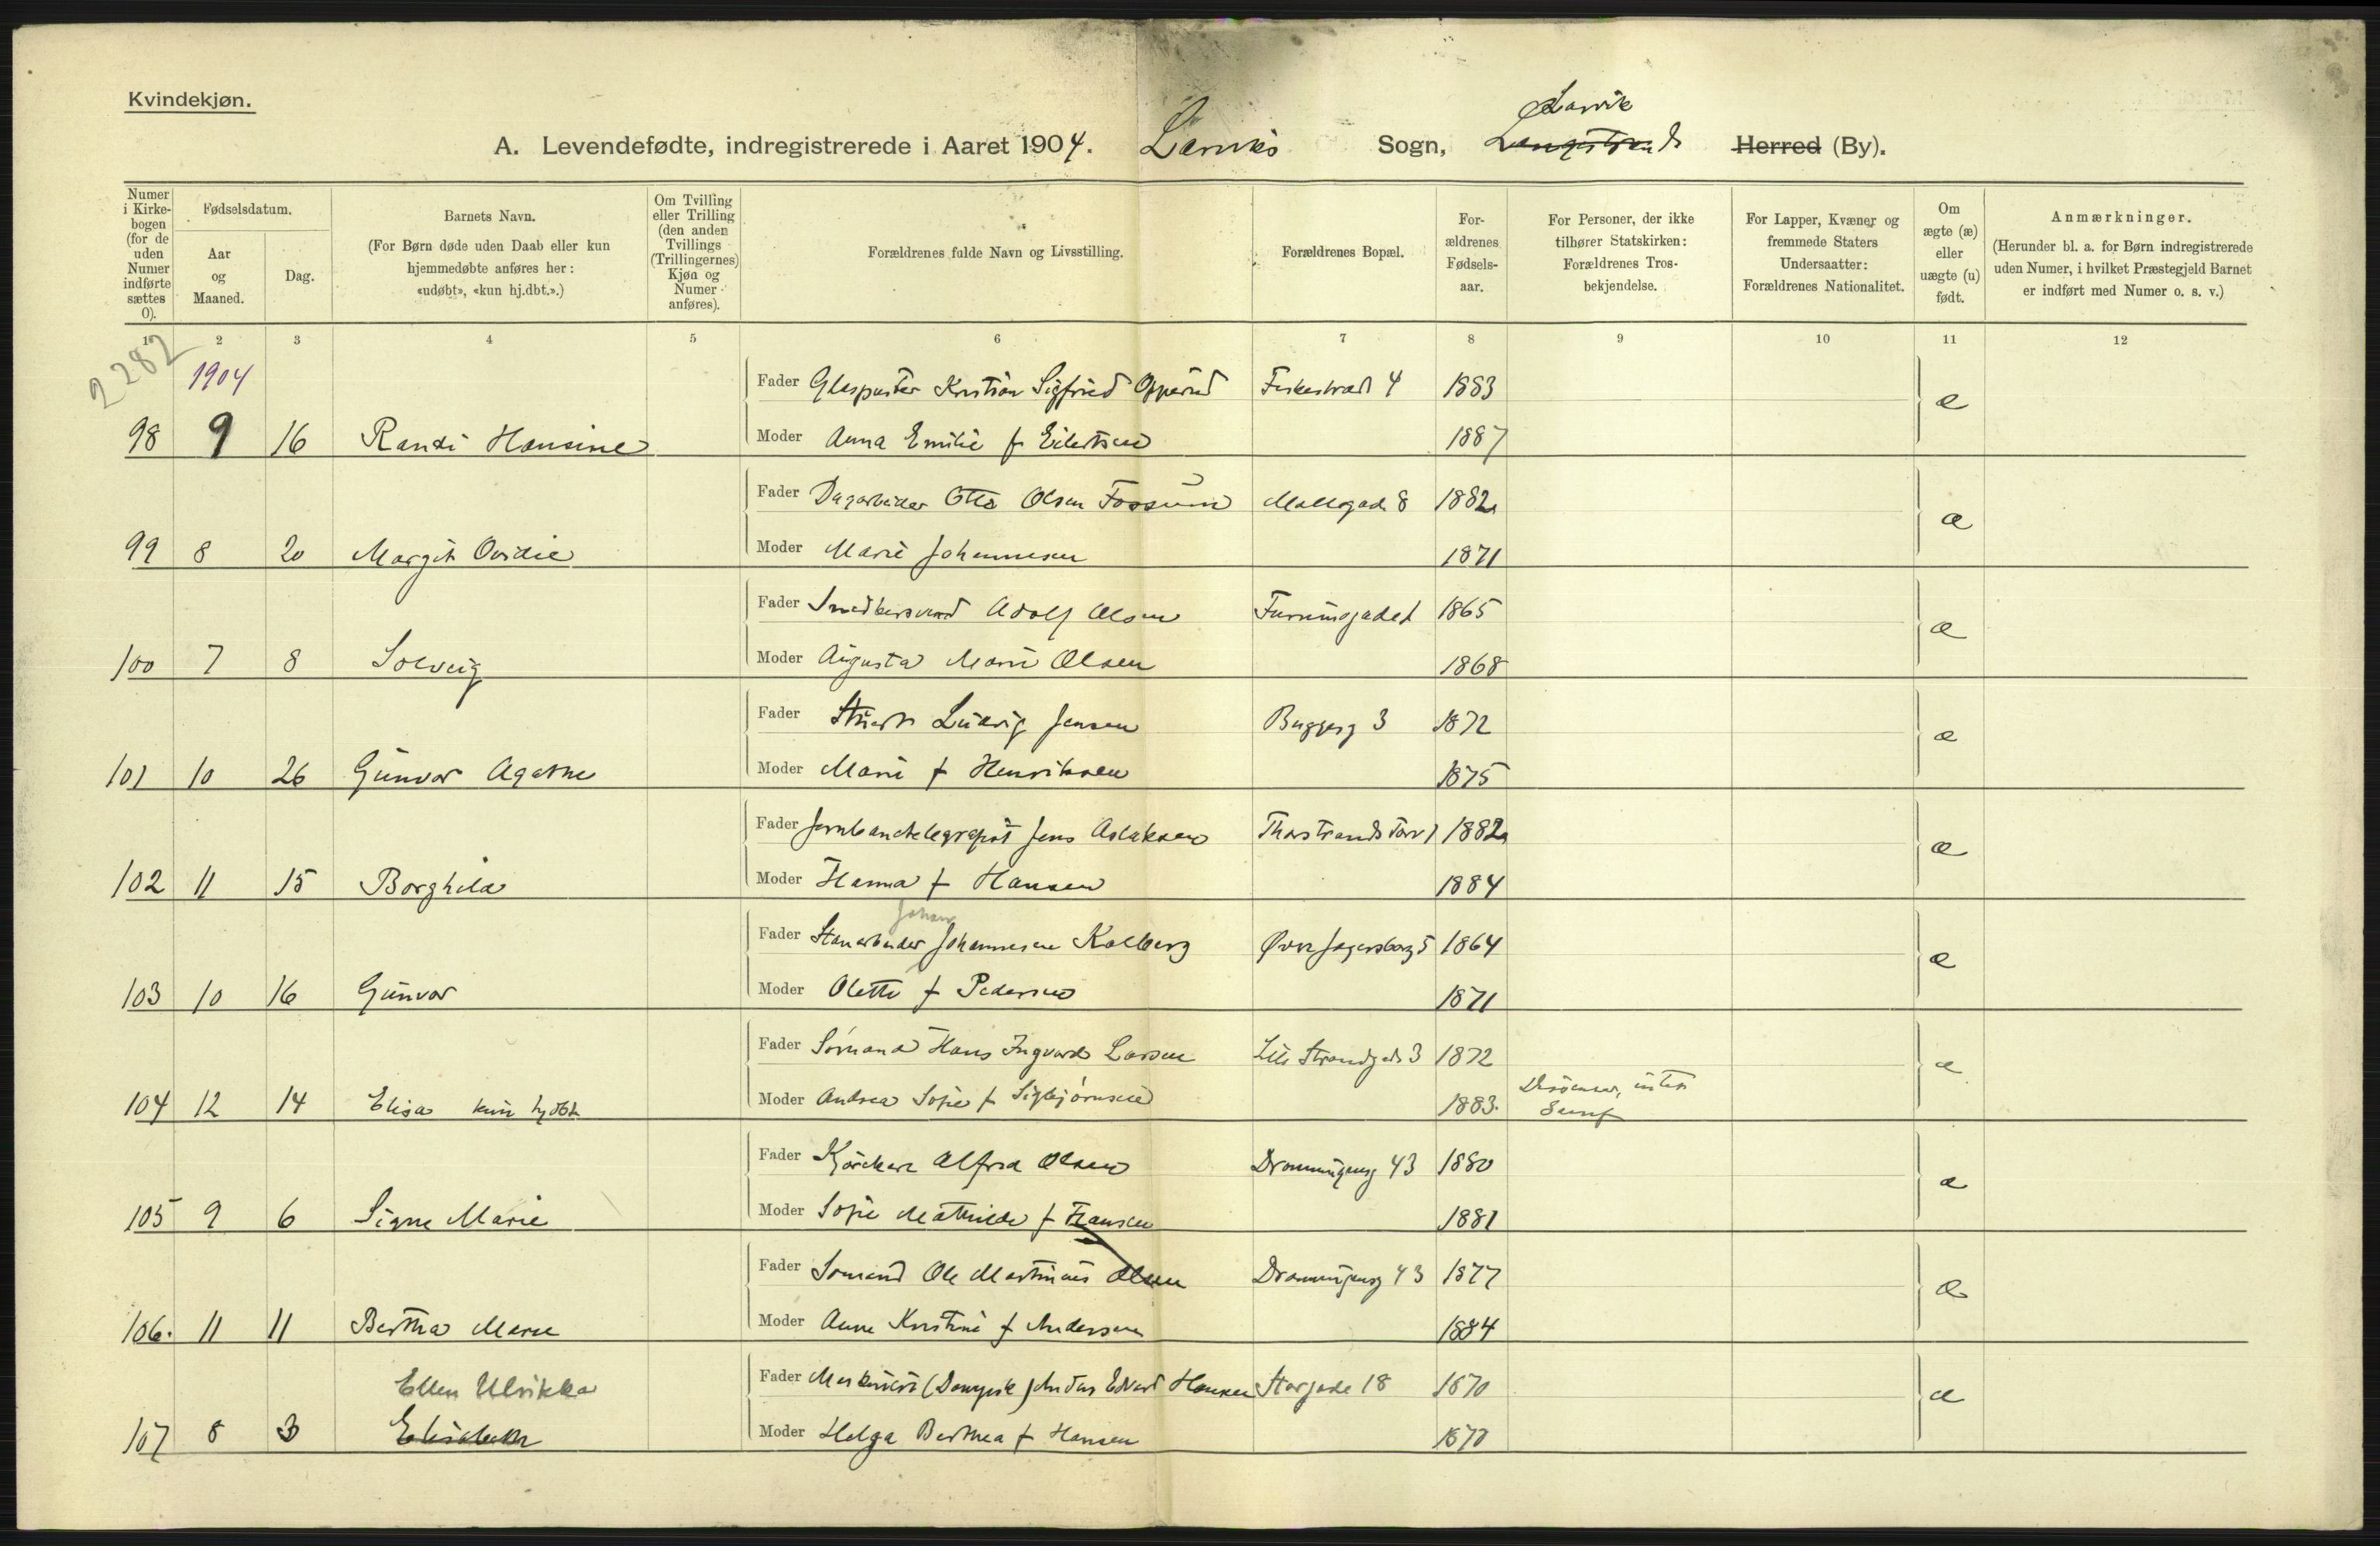 Kvindekjøn.
Larvik
A. Levendefødte, indregistrerede i Aaret 1904. Larviks Sogn, Langestrands Herred (By).
Numer i Kirkebogen (for de uden Numer indførte sættes 0).
Fødselsdatum.
Aar og Maaned.
Dag.
Barnets Navn.
(For Børn døde uden Daab eller kun hjemmedøbte anføres her: «udøbt», «kun hj.dbt.».)
Om Tvilling eller Trilling (den anden Tvillings (Trillingernes) Kjøn og Numer anføres).
Forældrenes fulde Navn og Livsstilling.
Forældrenes Bopæl.
Forældrenes Fødselsaar.
For Personer, der ikke tilhører Statskirken: Forældrenes Trosbekjendelse.
For Lapper, Kvæner og fremmede Staters Undersaatter: Forældrenes Nationalitet.
Om ægte (æ) eller uægte (u) født.
Anmærkninger.
(Herunder bl. a. for Børn indregistrerede uden Numer, i hvilket Præstegjeld Barnet er indført med Numer o. s. v.)
1 2 3 4 5 6 7 8 9 10 11 12
2282
1904
Fader Glaspuster Kristian Sigfried Opperud Feskestræd 4 1883 æ
98 9 16 Randi Hansine Moder Anna Emilie f Eilertsen 1887
Fader Dagarbeider Otto Olsen Fossum Møllegade 8 1882 æ
99 8 20 Margit Ovidie Moder Marie Johannesen 1871
Fader Smedkersvend Adolf Olsen 1865 æ
100 7 8 Solveig Moder Augusta Marie Olsen 1868
Fader Ludvig Jensen Buggesg 3 1872 æ
101 10 26 Gunvor Agathe Moder Marie f Henriksen 1875
Fader Jernbanetelegrafist Jens Aslaksen Thorstrands Torv 1 1882 æ
102 11 15 Borghild Moder Hanna f Hansen 1884
Johan
Fader Stenarbeider Johannesen Kolberg Øvre Jegersborg 5 1864 æ
103 10 16 Gunvor Moder Olette f Pedersen 1871
Fader Sømand Hans Ingvard Larsen Lille Strandgade 3 1872 æ
104 12 14 Elisa kun hjdbt Moder Andrea Sofie f Sigbjørnsen 1883. Dissenter, uden Samf
Fader Kjørekarl Alfred Olsen Dronningensg 43 1880 æ
105 9 6 Signe Marie Moder Sofie Mathilde f Hansen 1881
Fader Sømand Ole Martinius Olsen Dronningensg 43 1877 æ
106. 11 11 Bertha Marie Moder Anne Kristine f Andersen 1884
Ellen Ulrikka Fader Maskinist (Dampsk) Anders Edvard Hansen Storgade 18 1870 æ
107 8 3 Elisabeth Moder Helga Berthea f Hansen 1870